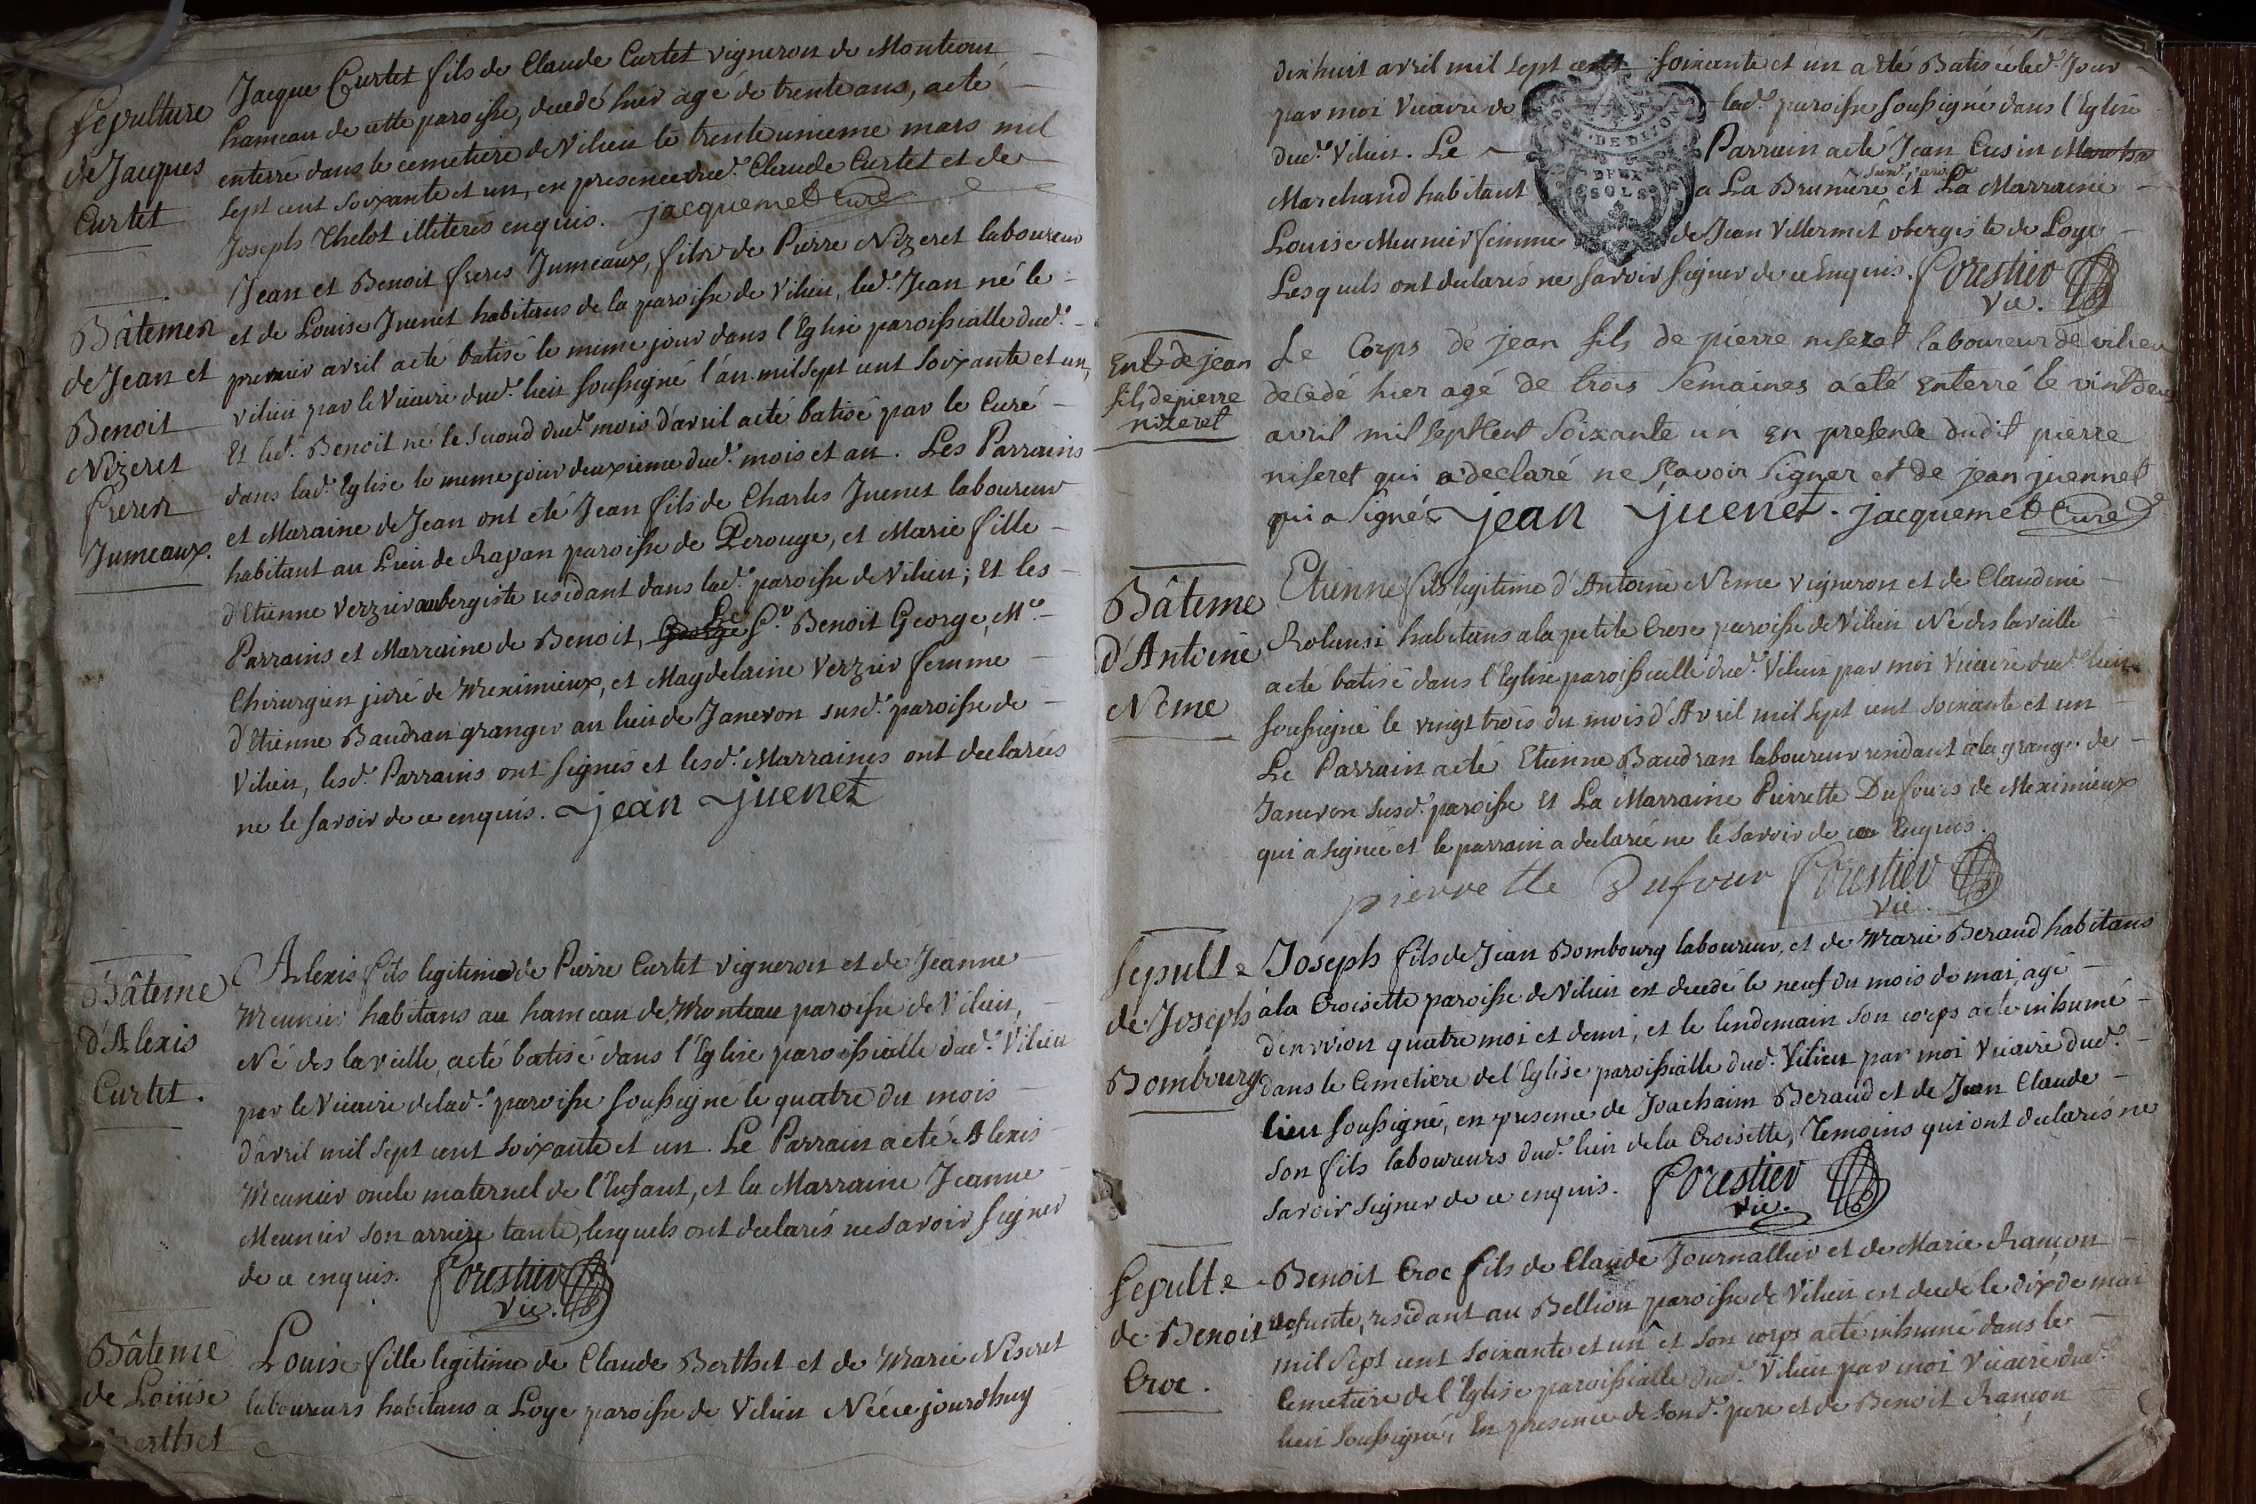 Sepulture
de Jacques
Curtet
Jacque Curtet fils de Claude Curtet vigneron de Monteau
hameau de cette paroisse, decedé hier agé de trente ans, a eté
enterré dans le cemetiere de Vilieu le trente unieme mars mil
sept cent soixante et un, en presence dud.t Claude Curtet et de
Joseph Thelot illiterés enquis. jacquemet Curé
Bâtemen
de Jean et
Benoit
Nizeret
freres
Jumeaux.
Jean et Benoit freres Jumeaux, fils de Pierre Nizeret laboureur
et de Louise Juenet habitans de la paroisse de Vilieu, led.t Jean né le
premier avril a eté batisé le meme jour dans l'Eglise paroissialle dud.t
vilieu par le Vicaire dud.t lieu soussigné l'an mil sept cent soixante et un,
Et led.t Benoit né le second dud.t mois d'avril a eté batisé par le Curé
dans lad.e Eglise le meme jour deuxieme dud.t mois et an. Les Parrains
et Maraine de Jean ont eté Jean fils de Charles Juenet laboureur
habitant au Lieu de Rapan paroisse de Perouge, et Marie fille
d'Etienne Verzier aubergiste residant dans lad.e paroisse de Vilieu; Et les
Parrains et Marraine de Benoit, George Le S.r Benoit George, M.e
Chirurgien juré de Meximieux, et Magdelaine Verzier femme
d'Etienne Baudran granger au lieu de Janevon susd.e paroisse de
Vilieu, lesd.t Parrains ont signés et lesd.t Marraines ont declarées
ne le savoir de ce enquis. jean juenet
Bâteme
d'Alexis
Curtet.
Alexis fils legitime de Pierre Curtet vigneron et de Jeanne
Meunier habitans au hameau de Monteau paroisse de Vilieu,
Né dès la veille, a eté batisé dans l'Eglise paroissialle dud.t Vilieu
par le Vicaire de lad.e paroisse soussigné le quatre du mois
d'avril mil sept cent soixante et un. Le Parrain a eté Alexis
Meunier oncle maternel de l'Enfant, et la Marraine Jeanne
Meunier son arriere tante, lesquels ont declarés ne savoir signer
de ce enquis. Forestier
vic.
Bâteme
de Louise
Berthet
Louise fille legitime de Claude Berthet et de Marie Niseret
laboureurs habitans a Loye paroisse de Vilieu Née ce jourdhuy
dixhuit avril mil sept cent soixante et un a eté Batisée led.t Jour
par moi Vicaire de lad.e paroisse soussigné dans l'Eglise
dud.t Vilieu. Le Parrain a eté Jean Cusin Marcha
Marchand habitant a La Brunière susd. paroisse et La Marraine
Louise Meunier femme de Jean Villermet obergiste de Loye
Lesquels ont declarés ne savoir signer de ce Enquis. Forestier
Vic.
GEN. DE DIJON
DEUX
SOLS
Ent. de jean
fils de pierre
nizeret
Le Corps de jean fils de pierre niseret laboureur de vilieu
decedé hier agé de trois semaines a eté Enterré le vint deux
avril mil sept Cent Soixante un En presence dudit pierre
niseret qui a declaré ne sçavoir signer et de jean juennet
qui a signé jean juenet. jacquemet Curé
Bâteme
d'Antoine
Nême
Etienne fils legitime d'Antoine Neme vigneron et de Claudine
habitans a la petite Crose paroisse de Vilieu Né des la veille
a eté batisé dans l'Eglise paroissialle dud.t Vilieu par moi Vicaire dud.t lieu
soussigné le vingt trois du mois d'Avril mil sept cent soixante et un
Le Parrain a eté Etienne Baudran laboureur residant a la grange de
Janevon susd.e paroisse Et La Marraine Pierrette Dufours de Meximieux
qui a signée et le parrain a declaré ne le savoir de ce Enquis.
pierrette Dufour Forestier
Vic.
Sepult.e
de Joseph
Bombourg
Joseph fils de Jean Bombourg laboureur, et de Marie Beraud habitans
à la Croisette paroisse de Vilieu est decedé le neuf du mois de mai, agé
d'environ quatre moi et demi, et le lendemain son corps a eté inhumé
dans le Cemetiere de l'Eglise paroissialle dud.t Vilieu par moi Vicaire dud.t
lieu soussigné, en presence de Joachaim Beraud et de Jean Claude
son fils laboureurs dud.t lieu de la Croisette, Temoins qui ont declarés ne
savoir signer de ce enquis. Forestier
vic.
Sepult.e
de Benoit
Croc.
Benoit Croc fils de Claude Journallier et de Marie Rançon
defunte, residant au Bellion paroisse de Vilieu est decedé le dix de mai
mil sept cent soixante et un et son corps a eté inhumé dans le
Cemetiere de l'Eglise paroissialle dud.t Vilieu par moi Vicaire dud.t
lieu soussigné, En presence de sond.t pere et de Benoit Rançon